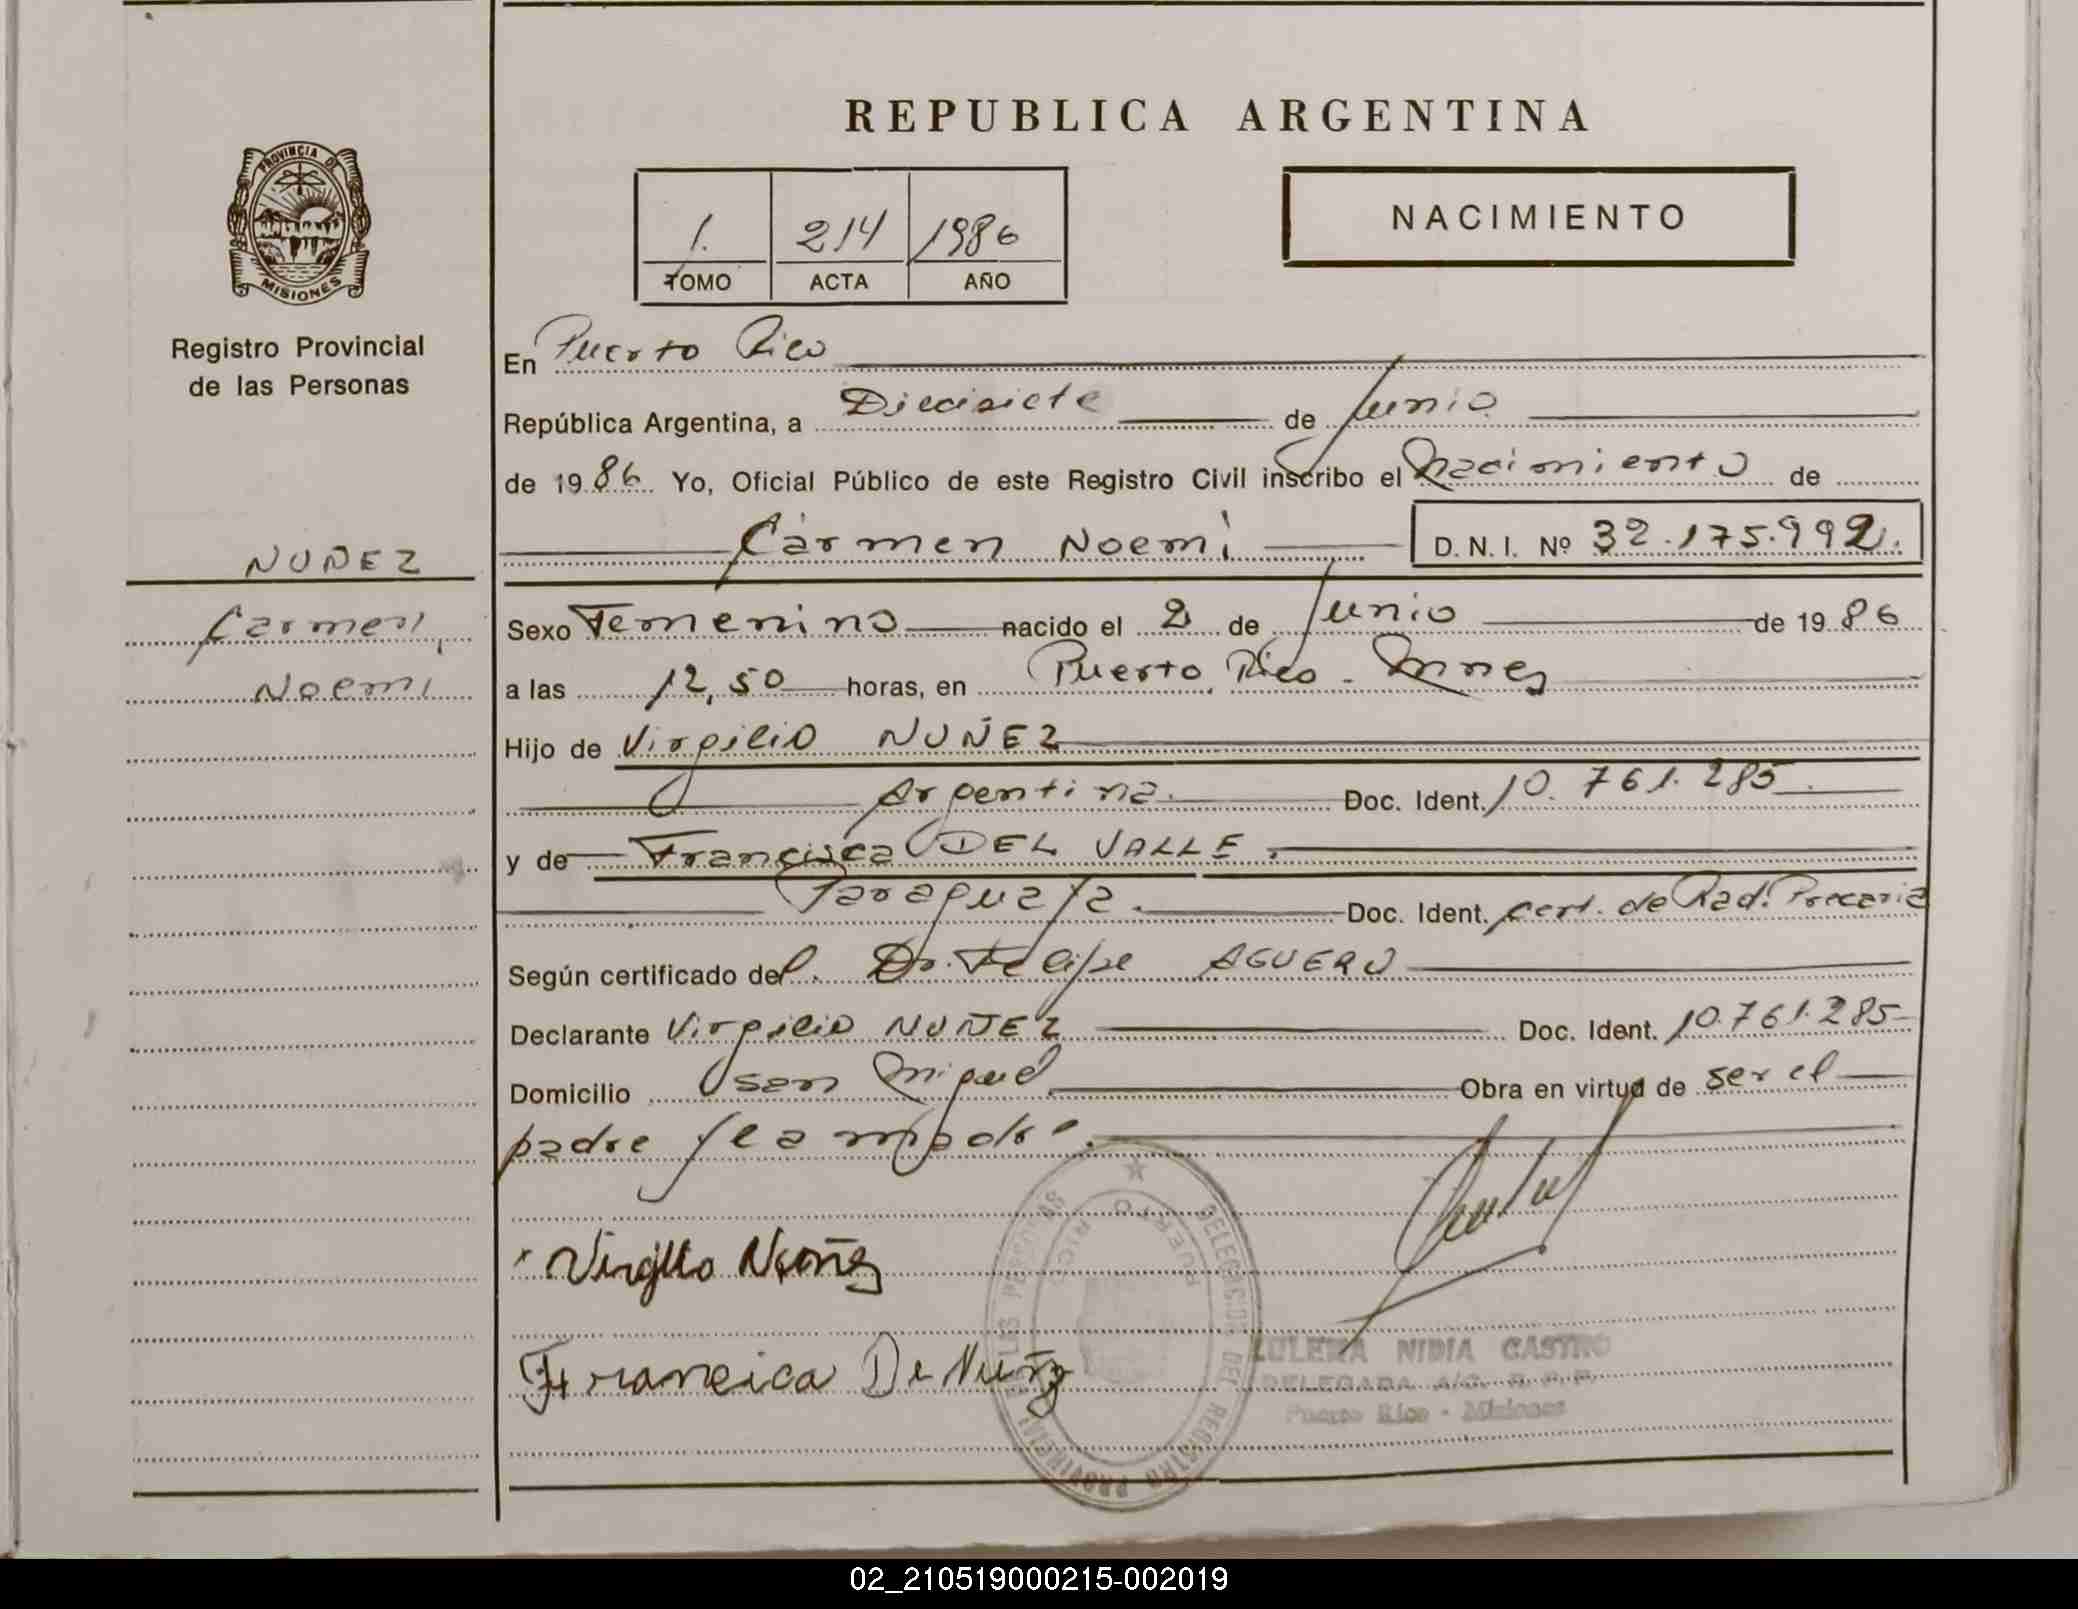 REPUBLICA ARGENTINA
PROVINCIA DE
MISIONES
Registro Provincial
de las Personas
NUÑEZ
Carmen,
Noemi
1. 214 1986
TOMO ACTA AÑO
NACIMIENTO
En Puerto Rico
República Argentina, a Diecisiete de Junio
de 1986 Yo, Oficial Público de este Registro Civil inscribo el Nacimiento de
Carmen Noemi D. N. I. Nº 32.175.992.
Sexo Femenino nacido el 2 de Junio de 1986
a las 12,50 horas, en Puerto Rico - Mnes
Hijo de Virgilio NUÑEZ
Argentina. Doc. Ident. 10.761.285.
y de Francisca DEL VALLE.
Paraguaya. Doc. Ident. cert. de Rad. Precaria
Según certificado del. Dr. Felipe AGUERO
Declarante Virgilio NUÑEZ Doc. Ident. 10.761.285
Domicilio San Miguel Obra en virtud de ser el
padre y la madre.
Virgilio Nuñez
Francica De Nuñz
DELEGACION DEL REGISTRO PROVINCIAL DE LAS PERSONAS
PUERTO RICO
ZULEMA NIDIA CASTRO
DELEGADA A/C. R. P. P.
Puerto Rico - Misiones
02_210519000215-002019